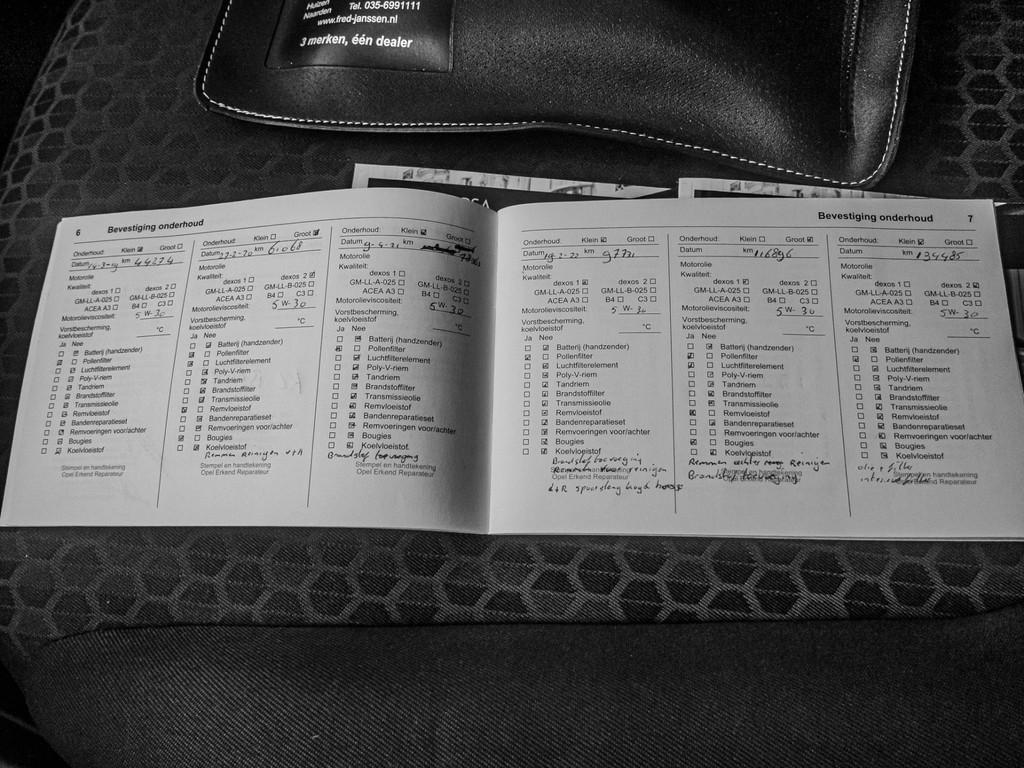 Huizen
Naarden
Tel. 035-6991111
www.fred-janssen.nl
3 merken, één dealer
6 Bevestiging onderhoud
Onderhoud: Klein Groot
Datum km 44274
Motorolie
Kwaliteit:
dexos 1 dexos 2
GM-LL-A-025 GM-LL-B-025
ACEA A3 B4 C3
Motorolieviscositeit:
5 W-30
Vorstbescherming,
koelvloeistof °C
Ja Nee
Batterij (handzender)
Pollenfilter
Luchtfilterelement
Poly-V-riem
Tandriem
Brandstoffilter
Transmissieolie
Remvloeistof
Bandenreparatieset
Remvoeringen voor/achter
Bougies
Koelvloeistof
Stempel en handtekening
Opel Erkend Reparateur
Onderhoud: Klein Groot
Datum km
Motorolie
Kwaliteit:
dexos 1 dexos 2
GM-LL-A-025 GM-LL-B-025
ACEA A3 B4 C3
Motorolieviscositeit:
5 W-30
Vorstbescherming,
koelvloeistof °C
Ja Nee
Batterij (handzender)
Pollenfilter
Luchtfilterelement
Poly-V-riem
Tandriem
Brandstoffilter
Transmissieolie
Remvloeistof
Bandenreparatieset
Remvoeringen voor/achter
Bougies
Koelvloeistof
Remmen Reinigen V+A
Stempel en handtekening
Opel Erkend Reparateur
Onderhoud: Klein Groot
Datum 9-4-21 km
Motorolie
Kwaliteit:
dexos 1 dexos 2
GM-LL-A-025 GM-LL-B-025
ACEA A3 B4 C3
Motorolieviscositeit:
5 W-30
Vorstbescherming,
koelvloeistof °C
Ja Nee
Batterij (handzender)
Pollenfilter
Luchtfilterelement
Poly-V-riem
Tandriem
Brandstoffilter
Transmissieolie
Remvloeistof
Bandenreparatieset
Remvoeringen voor/achter
Bougies
Koelvloeistof
Brandstof toevoeging
Stempel en handtekening
Opel Erkend Reparateur
Bevestiging onderhoud 7
Onderhoud: Klein Groot
Datum km 97721
Motorolie
Kwaliteit:
dexos 1 dexos 2
GM-LL-A-025 GM-LL-B-025
ACEA A3 B4 C3
Motorolieviscositeit:
5 W-30
Vorstbescherming,
koelvloeistof °C
Ja Nee
Batterij (handzender)
Pollenfilter
Luchtfilterelement
Poly-V-riem
Tandriem
Brandstoffilter
Transmissieolie
Remvloeistof
Bandenreparatieset
Remvoeringen voor/achter
Bougies
Koelvloeistof
Brandstof toevoeging
Remmen reinigen
Opel Erkend Reparateur
Onderhoud: Klein Groot
Datum km 116896
Motorolie
Kwaliteit:
dexos 1 dexos 2
GM-LL-A-025 GM-LL-B-025
ACEA A3 B4 C3
Motorolieviscositeit:
5 W-30
Vorstbescherming,
koelvloeistof °C
Ja Nee
Batterij (handzender)
Pollenfilter
Luchtfilterelement
Poly-V-riem
Tandriem
Brandstoffilter
Transmissieolie
Remvloeistof
Bandenreparatieset
Remvoeringen voor/achter
Bougies
Koelvloeistof
Remmen achter Reinigen
Brandstof toevoeging
Onderhoud: Klein Groot
Datum km 134485
Motorolie
Kwaliteit:
dexos 1 dexos 2
GM-LL-A-025 GM-LL-B-025
ACEA A3 B4 C3
Motorolieviscositeit:
5W-30
Vorstbescherming,
koelvloeistof °C
Ja Nee
Batterij (handzender)
Pollenfilter
Luchtfilterelement
Poly-V-riem
Tandriem
Brandstoffilter
Transmissieolie
Remvloeistof
Bandenreparatieset
Remvoeringen voor/achter
Bougies
Koelvloeistof
olie + filter
Stempel en handtekening
Opel Erkend Reparateur